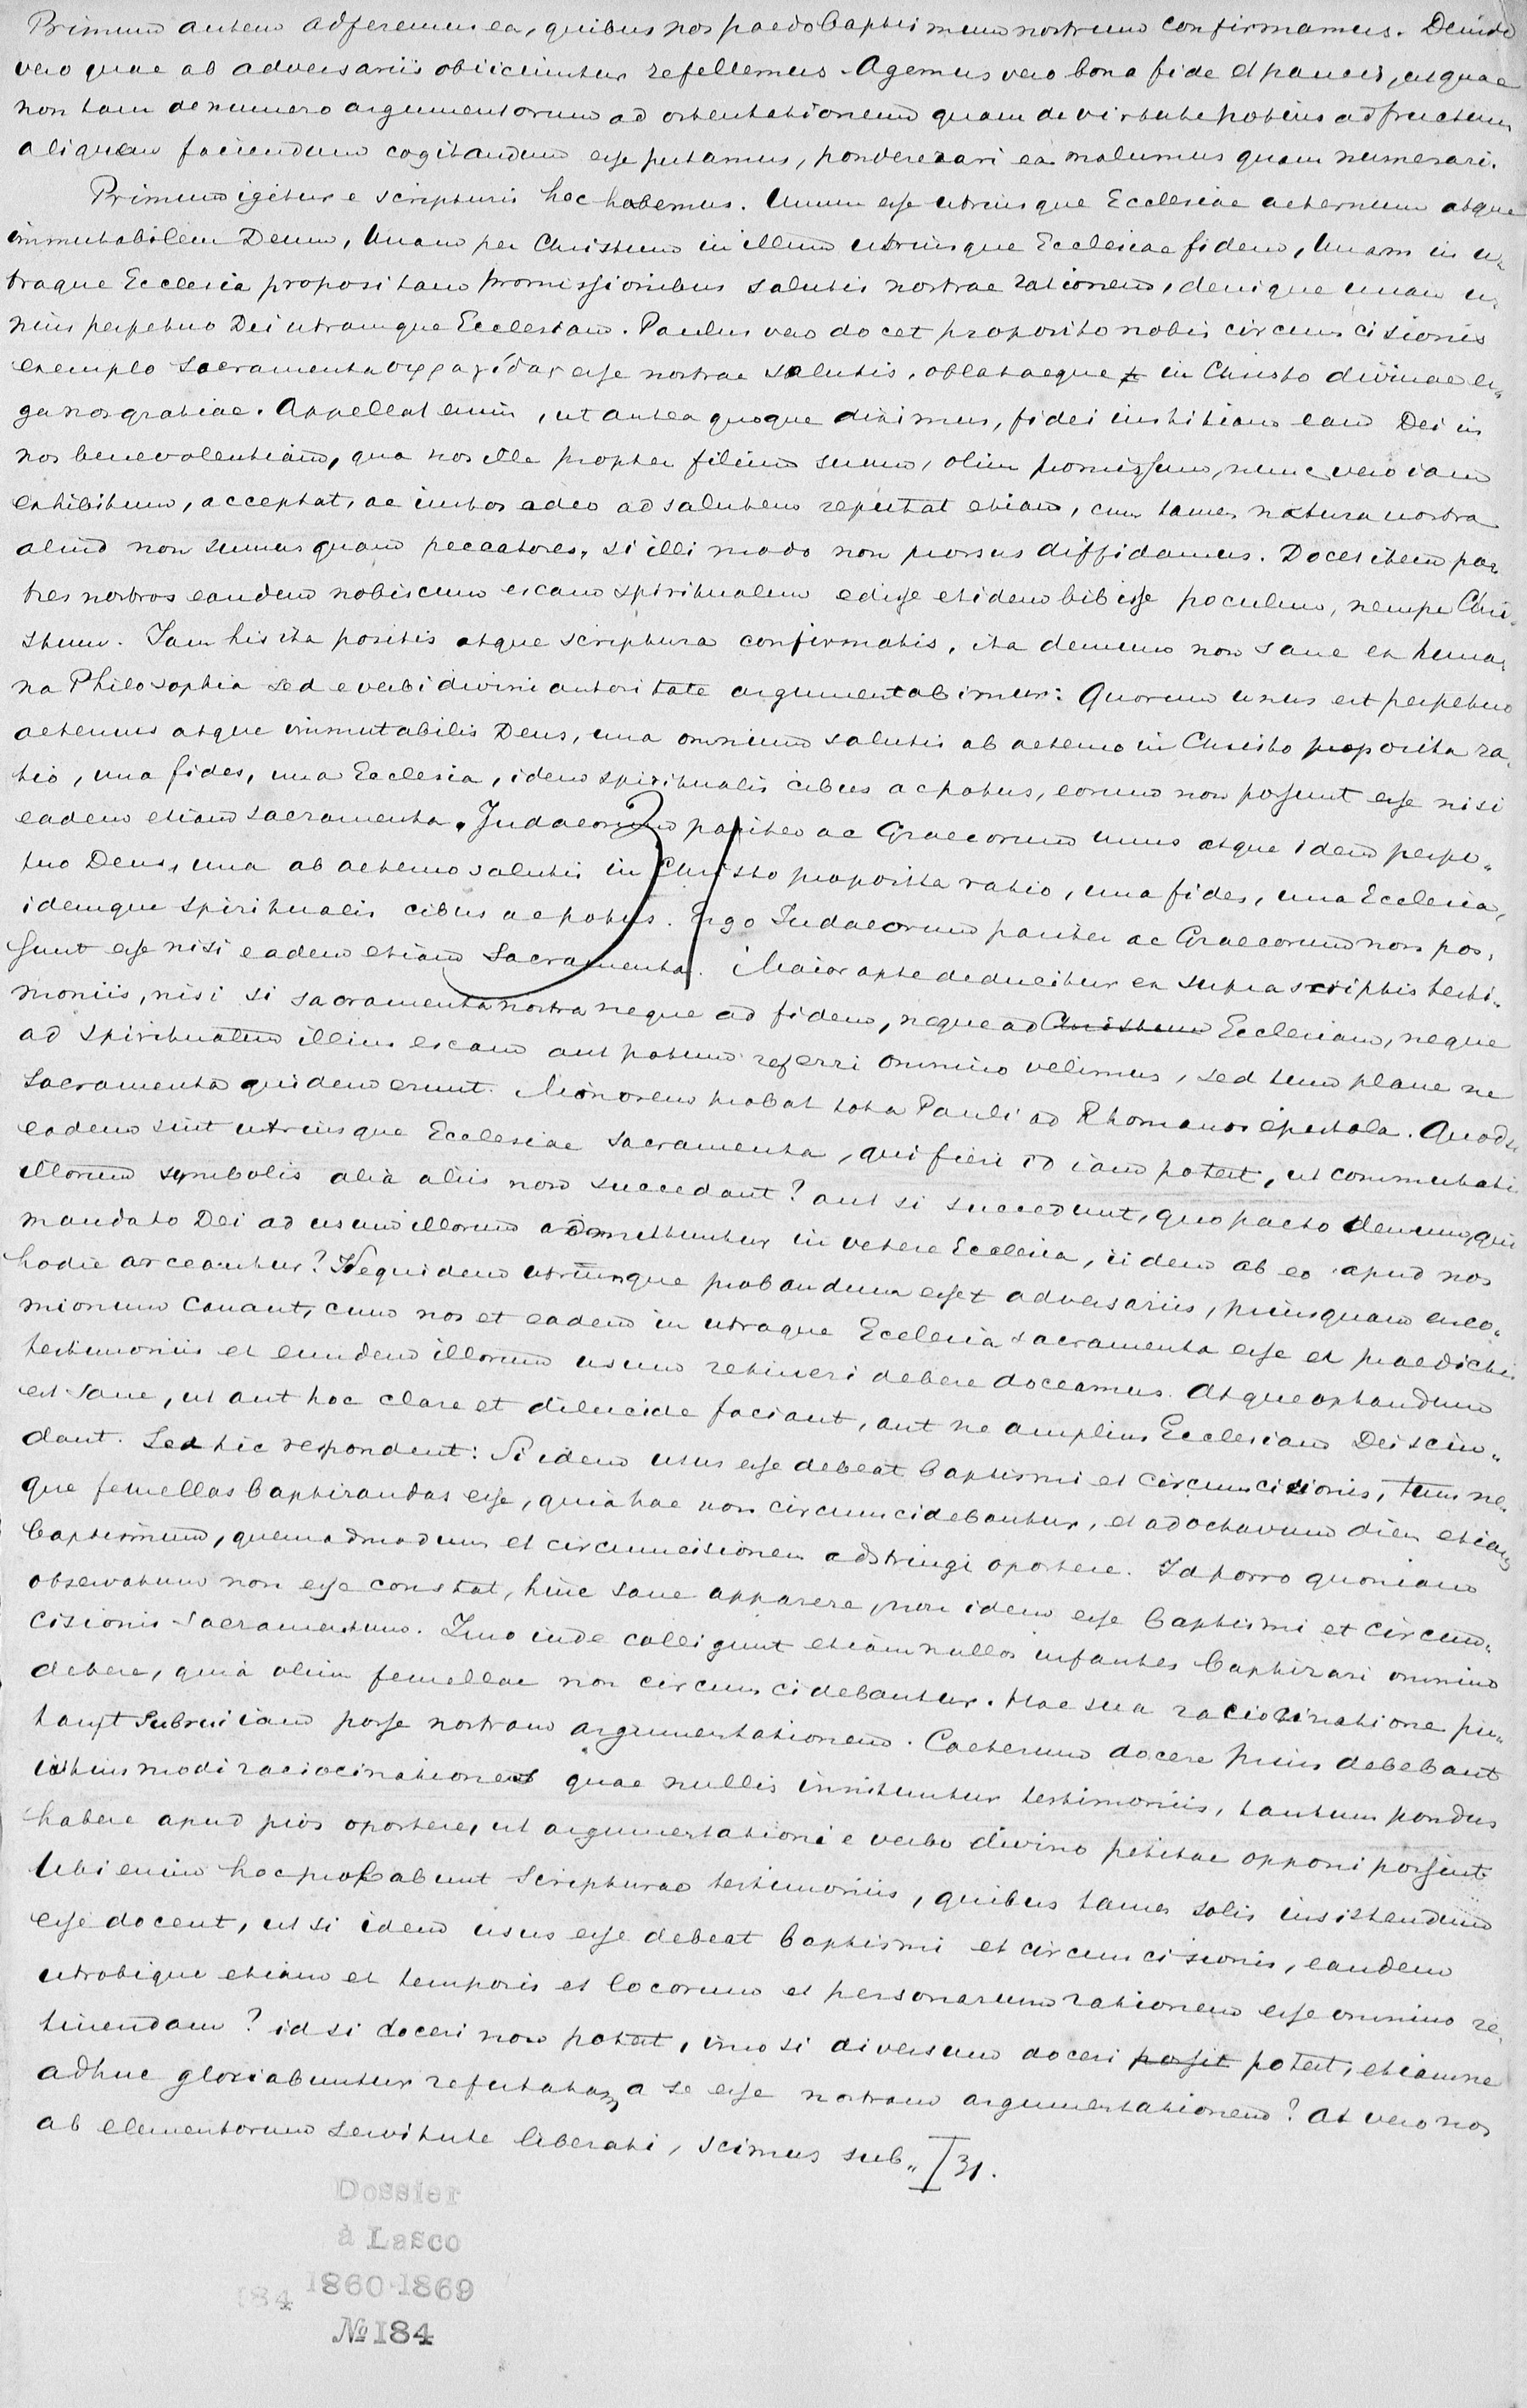 Primum autem adferemus ea, quibus nos paedobaptismum nostrum confirmamus. Deinde
vero quae ab adversariis obiiciuntur refellemus. Agemus vero bona fide et paucis, utque
non tam de numero argumentorum ad ostentationem quam de virtute potius ad fructum
aliquem faciendum cogitandum esse putamus, ponderari ea malumus quam numerari.
Primum igitur e scripturis hoc habemus. Unum esse utriusque Ecclesiae aeternum atque
immutabilem Deum, Unam per Christum in illum utriusque Ecclesiae fidem, Unam in u„
traque Ecclesia propositam promissionibus salutis nostrae rationem, denique unam u„
nius perpetuo Dei utramque Ecclesiam. Paulus vero docet proposito nobis circumcisionis
exemplo sacramenta σφραγίδας esse nostrae salutis, oblataeque in Christo divinae er„
ga nos gratiae. Appellat enim, ut antea quoque diximus, fidei iustitiam eam Dei in
nos benevolentiam, qua nos ille propter filium suum, olim promissum, nunc vero iam
exhibitum, acceptat, ac iustos adeo ad salutem reputat etiam, cum tamen natura nostra
aliud non sumus quam peccatores, si illi modo non prorsus diffidamus. Docet item pa„
tres nostros eandem nobiscum escam spiritualem edisse et idem bibisse poculum, nempe Chri„
stum. Iam his ita positis atque scriptura confirmatis, ita demum non sane ex huma„
na Philosophia sed e verbi divini autoritate argumentabimur: Quorum unus est perpetuo
aeternus atque immutabilis Deus, una omnium salutis ab aeterno in Christo proposita ra„
tio, una fides, una Ecclesia, idem spiritualis cibus ac potus, eorum non possunt esse nisi
eadem etiam sacramenta. Judaeorum pariter ac Graecorum unus atque idem perpe„
tuo Deus, una ab aeterno salutis in Christo proposita ratio, una fides, una Ecclesia,
idemque spiritualis cibus ac potus. Ergo Iudaeorum pariter ac Graecorum non pos„
sunt esse nisi eadem etiam Sacramenta. Maior apte deducitur ex supra scriptis testi„
moniis, nisi si sacramenta nostra neque ad fidem, neque ad Christum Ecclesiam, neque
ad spiritualem illius escam aut potum referri omnino velimus, sed tum plane ne
Sacramenta quidem erunt. Minorem probat tota Pauli ad Rhomanos epistola. Quodsi
eadem sint utriusque Ecclesiae sacramenta, qui fieri id iam potest, ut commutatis
illorum symbolis alia aliis non succedant? aut si succedunt, quo pacto demum, qui
mandato Dei ad usum illorum admittuntur in vetere Ecclesia, iidem ab eo apud nos
hodie arceantur? Nequidem utrumque probandum esset adversariis, priusquam enco„
mionum canant, cum nos et eadem in utraque Ecclesia sacramenta esse ex praedictis
testimoniis et eundem illorum usum retineri debere doceamus. Atque optandum
est sane, ut aut hoc clare et dilucide faciant, aut ne amplius Ecclesiam Dei scin„
dant. Sed hic respondent: Si idem usus esse debeat baptismi et circumcisionis, tum ne„
que femellas baptizandas esse, quia hae non circumcidebantur, et ad octavum diem etiam
baptismum, quemadmodum et circumcisionem adstringi oportere. Id porro quoniam
observatum non esse constat, hinc sane apparere, non idem esse baptismi et circum„
cisionis Sacramentum. Imo inde colligunt etiam nullos infantes baptizari omnino
debere, quia olim femellae non circumcidebantur. Hac sua raciocinatione pu„
tant subrui iam posse nostram argumentationem. Caeterum docere prius debebant
istiusmodi raciocinationes quae nullis innituntur testimoniis, tantum pondus
habere apud pios oportere, ut argumentationi e verbo divino petitae opponi possint
Ubi enim hoc probabunt Scripturae testimoniis, quibus tamen solis insistendum
esse docent, ut si idem usus esse debeat baptismi et circumcisionis, eandem
utrobique etiam et temporis et locorum et personarum rationem esse omnino re„
tinendam? id si doceri non potest, imo si diversum doceri possit potest, etiamne
adhuc gloriabuntur refutatam a se esse nostram argumentationem? At vero nos
ab elementorum servitute liberati, scimus sub„ I 31.
31
Dossier
à Lasco
1860-1869
184
№ 184